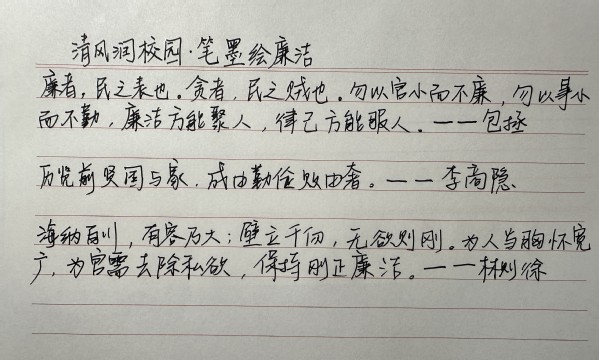 清风润校园·笔墨绘廉洁
廉者，民之表也。贪者，民之贼也。勿以官小而不廉，勿以事小
而不勤，廉洁方能聚人，律己方能服人。——包拯
历览前贤国与家，成由勤俭败由奢。——李商隐
海纳百川，有容乃大；壁立千仞，无欲则刚。为人当胸怀宽
广，为官需去除私欲，保持刚正廉洁。——林则徐